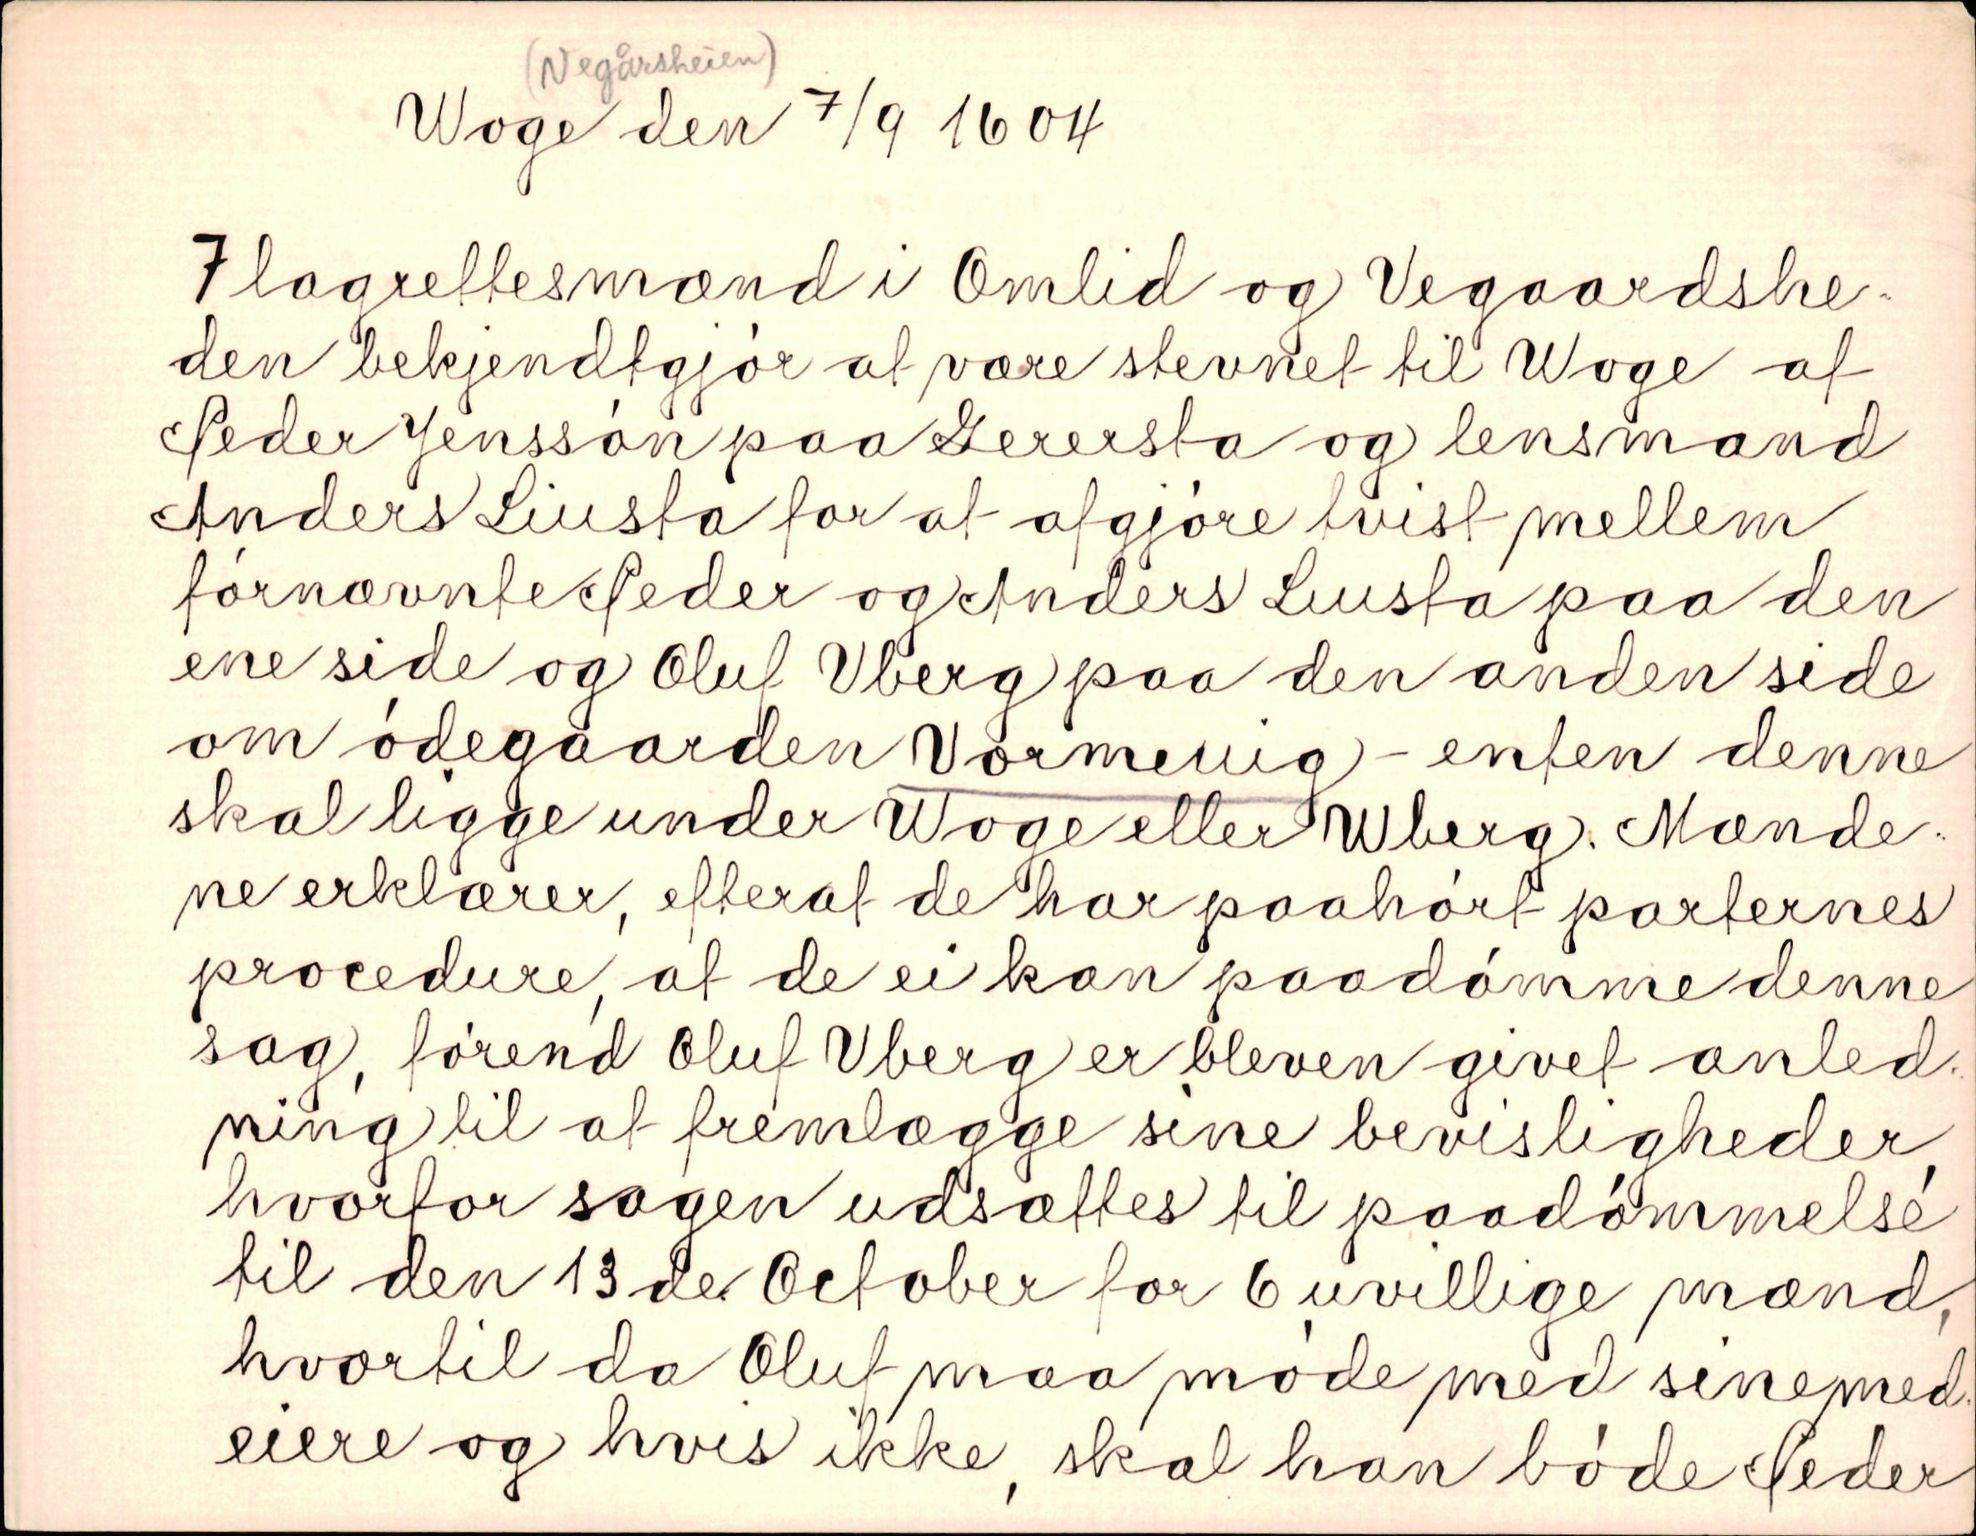 (Vegårsheien)
Woge den 7/9 1604
7 lagrettesmænd i Omlid og Vegaardshe-
den bekjendtgjór at være stevnet til Woge af
Peder Jenssón paa Gerersta og lensmand
Anders Liusta for at afgjóre tvist mellem
fórnævnte Peder og Anders Liusta paa den
ene side og Oluf Vberg paa den anden side
om ódegaarden Vormeuig - enten denne
skal ligge under Woge eller Wberg. Mænde-
ne erklærer, efterat de har paahórt parternes
procedure, at de ei kan paadómme denne
sag, fórend Oluf Vberg er bleven givet anled-
ning til at fremlægge sine bevisligheder,
hvorfor sagen udsættes til paadómmelse
til den 13de October for 6 uvillige mænd,
hvortil da Oluf maa móde med sine med-
eiere og hvis ikke, skal han bóde Peder